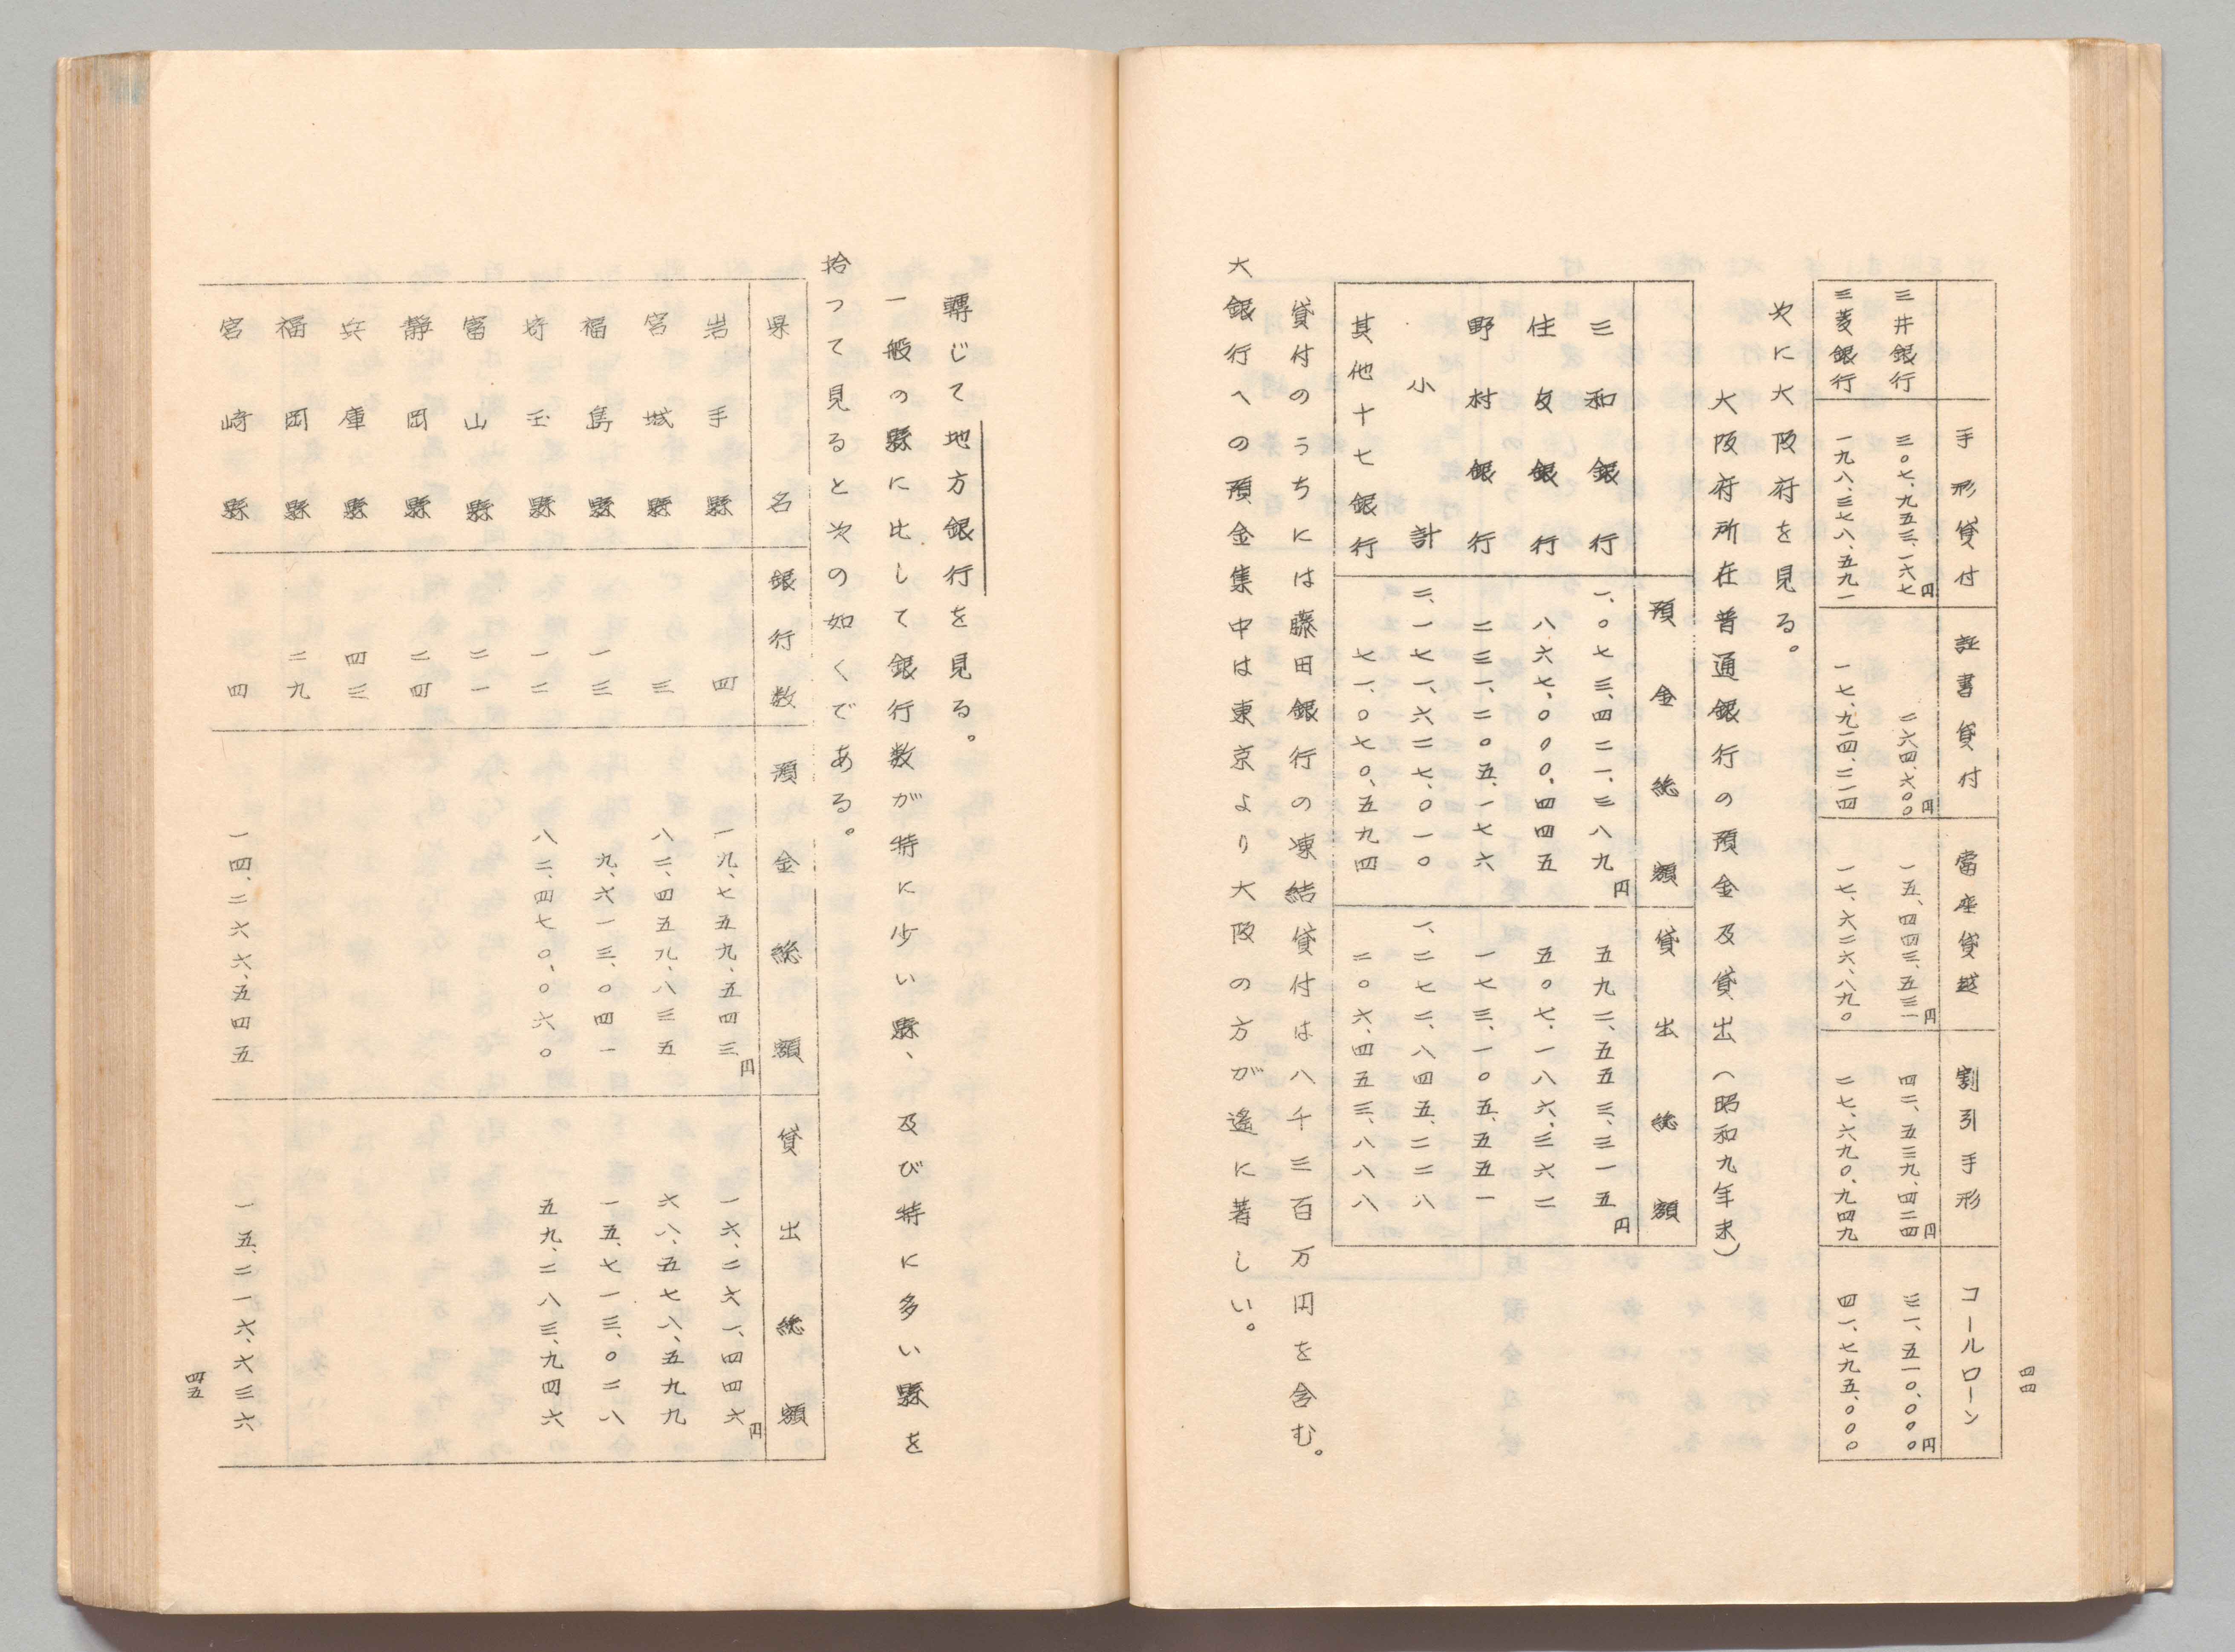 四四
手形貸付 証書貸付 當座貸越 割引手形 コールローン
三井銀行 三〇七、九五三、一六七円 二六四、六〇〇円 一五、四四三、五三一円 四二、五三九、四二四円 三一、五一〇、〇〇〇円
三菱銀行 一九八、三七八、五九一 一七、九一四、二一四 一七、六二六、八九〇 二七、六九〇、九四九 四一、七九五、〇〇〇
次に大阪府を見る。
大阪府所在普通銀行の預金及貸出(昭和九年末)
預金総額 貸出総額
三和銀行 一、〇七三、四二一、三八九円 五九二、五五三、三一五円
住友銀行 八六七、〇〇〇、四四五 五〇七、一八六、三六二
野村銀行 二三一、二〇五、一七六 一七三、一〇五、五五一
小計 二、一七一、六二七、〇一〇 一、二七二、八四五、二二八
其他十七銀行 七一、〇七〇、五九四 二〇六、四五三、八八八
貸付のうちには藤田銀行の凍結貸付は八千三百万円を含む。
大銀行への預金集中は東京より大阪の方が遙に著しい。
轉じて地方銀行を見る。
一般の縣に比して銀行数が特に少い縣、及び特に多い縣を
拾って見ると次の如くである。
県名 銀行数 預金総額 貸出総額
岩手縣 四 一九、七五九、五四三円 一六、二六一、四四六円
宮城縣 三 八二、四五九、八三五 六八、五七八、五九九
福島縣 一三 九、六一三、〇四一 一五、七一三、〇二八
埼玉縣 一二 八二、四七〇、〇六〇 五九、二八三、九四六
富山縣 二一
静岡縣 二四
兵庫縣 四三
福岡縣 二九
宮崎縣 四 一四、二六六、五四五 一五、二一六、六三六
四五